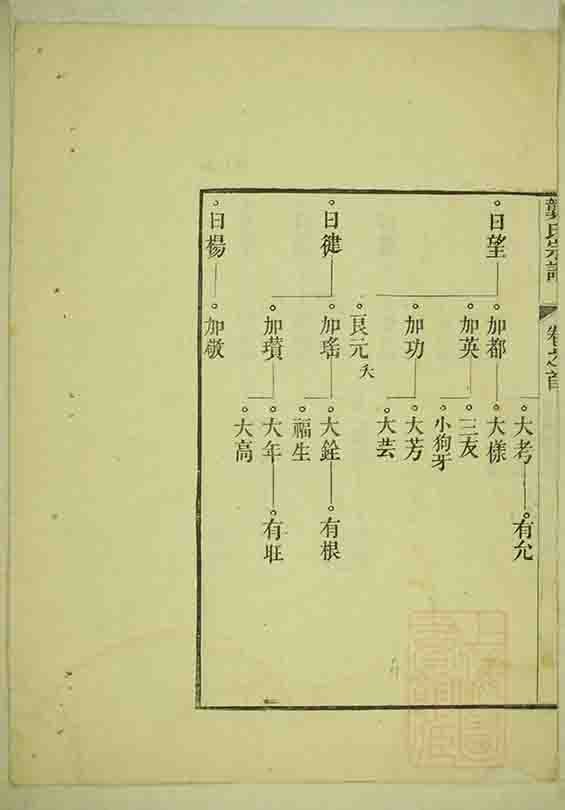 氏宗譜 卷之首
大考 有允
日望 加都 大樣
加英 三友
小狗牙
加功 大芳
大芸
良元 夭
日健 加瑤 大銓 有根
福生
加璜 大年 有旺
大高
日楊 加敬